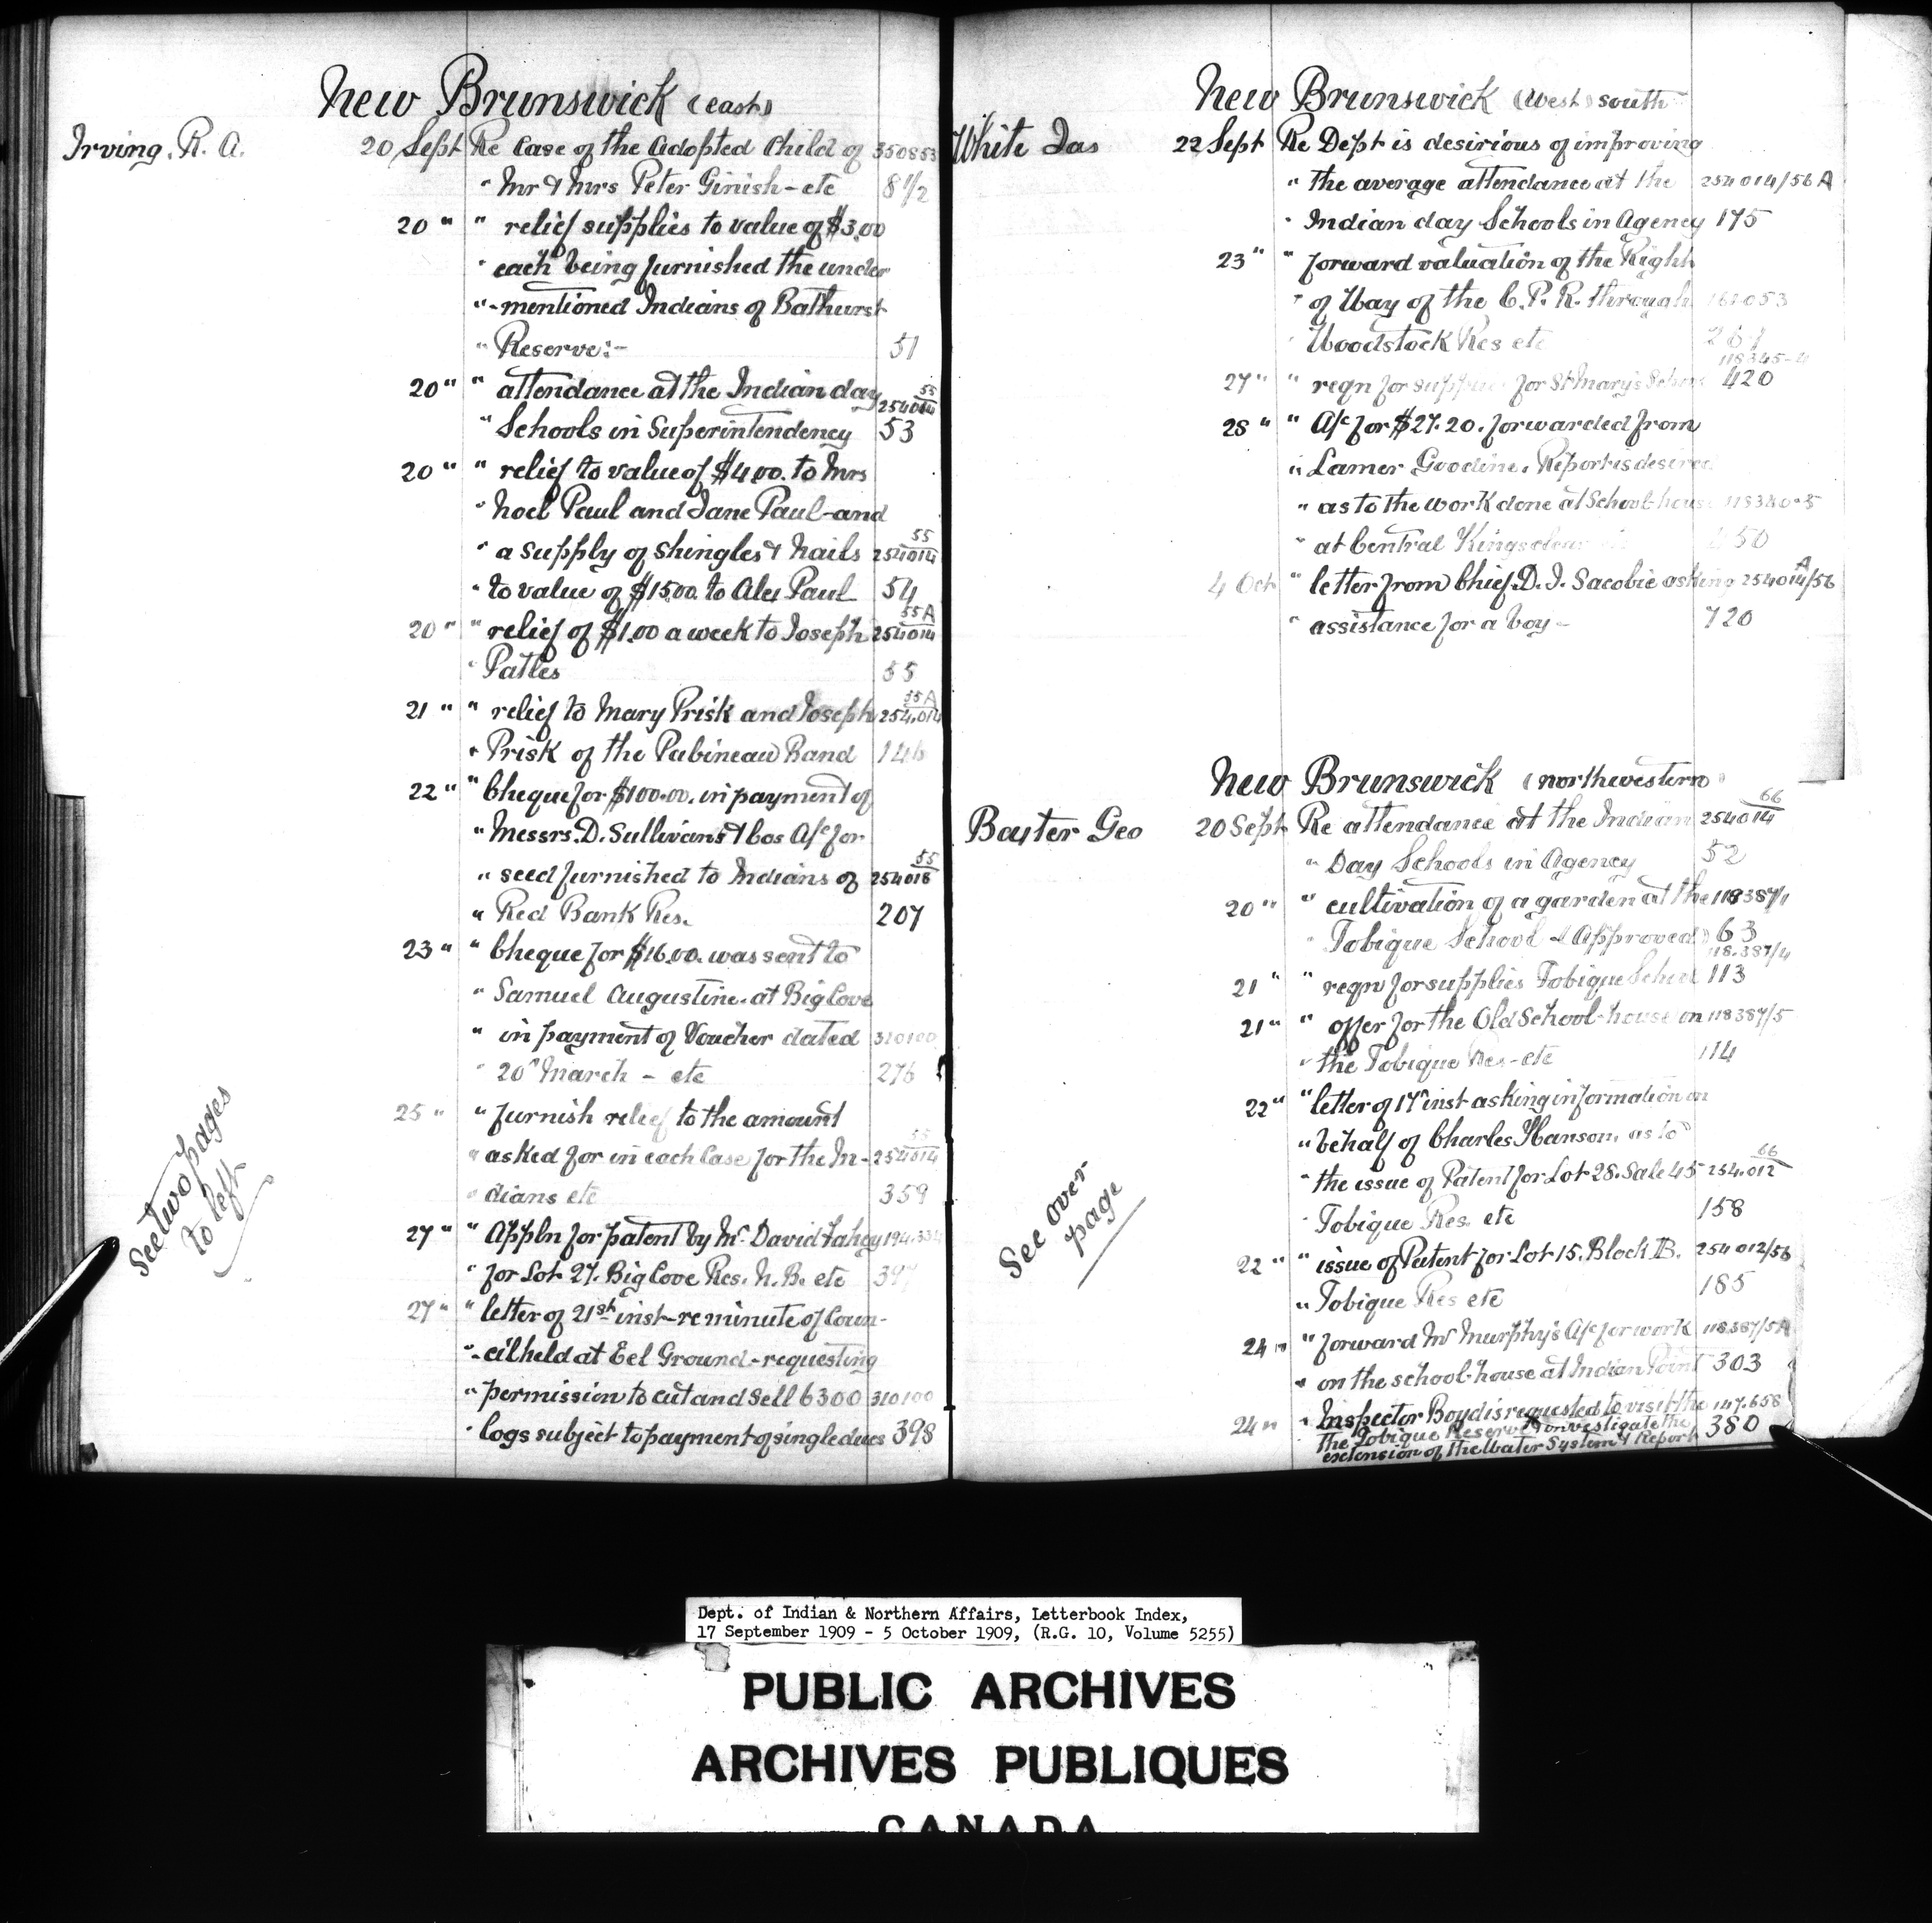 New Brunswick (east)
Irving. R. A. 20 Sept Re Case of the Adopted Child of 350853
" Mr & Mrs Peter Ginish - etc 8 1/2
20 " " relief supplies to value of $3.00
" each being furnished the under
" - mentioned Indians of Bathurst
" Reserve:- 51
20 " " attendance at the Indian day 254014 55
" Schools in Superintendency 53
20 " " relief to value of $4.00. to Mrs
" Noel Paul and Jane Paul - and
" a supply of shingles & Nails 254014 55
" to value of $15.00. to Alex Paul 54
20 " " relief of $1.00 a week to Joseph 254014 55A
" Patles 55
21 " " relief to Mary Prisk and Joseph 254,014 55A
" Prisk of the Pabineau Band 146
22 " " Cheque for $100.00. in payment of
" Messrs. D. Sullivans & Cos A/c for
" seed furnished to Indians of 254018 55
" Red Bank Res. 207
23 " " Cheque for $16.00. was sent to
" Samuel Augustine. at Big Cove
" in payment of Voucher dated 310100
" 20th March - etc 276
25 " " furnish relief to the amount
" asked for in each Case for the In- 254014 55
" dians etc 359
27 " " Appln for patent by Mr. David Fahey
" for Lot 27. Big Cove Res. N. B. etc 397
27 " " letter of 21st inst - re minute of Coun-
" - cil held at Eel Ground - requesting
" permission to cut and sell 6300 310100
" logs subject to payment of single dues 398
See two pages
to left
New Brunswick (West) south
White Jas 22 Sept Re Dept is desirious of improving
" the average attendance at the 254014/56A
" Indian day Schools in Agency 175
23 " " forward valuation of the Right
" of Way of the C. P. R. through
" Woodstock Res etc 267
118345-4
27 " " reqn for supplies for St Mary's School 420
28 " " A/c for $27.20. forwarded from
" Lamer Goodine. Report is desired
" as to the work done at School-house 118340-5
" at Central Kingsclear 450
4 Oct " letter from Chief. D. J. Sacobie asking 254014/56 A
" assistance for a boy - 720
New Brunswick (northwestern)
Baxter Geo 20 Sept Re attendance at the Indian 254014 66
" Day Schools in Agency 52
20 " " cultivation of a garden at the 118387/1
" Tobique School - (Approved) 63
118.387/4
21 " " reqn for supplies Tobique School 113
21 " " offer for the Old School-house on 118387/5
" the Tobique Res - etc 114
22 " " letter of 17th inst asking information on
" behalf of Charles Hanson, as to
" the issue of Patent for Lot 28. Sale 45 254.012 66
" Tobique Res. etc 158
22 " " issue of Patent for Lot 15. Block B. 254012/56
" Tobique Res etc 185
24 " " forward Mr Murphy's A/c for work 118.387/5A
" on the school-house at Indian Point 303
24 " " Inspector Boyd is requested to visit the 147.658
the Tobique Reserve & investigate the 380
extension of the Water System & Report
See over
page
Dept. of Indian & Northern Affairs, Letterbook Index,
17 September 1909 - 5 October 1909, (R.G. 10, Volume 5255)
PUBLIC ARCHIVES
ARCHIVES PUBLIQUES
CANADA